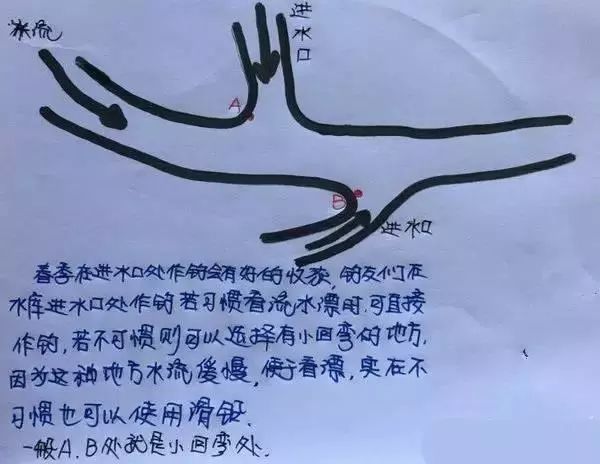 水流
进水口
A
B
进水口
春季在进水口处作钓会有好的收获，钓友们在
水库进水口处作钓若习惯看流水漂时，可直接
作钓，若不可惯则可以选择有小回弯的地方，
因为这种地方水流缓慢，便于看漂，实在不
习惯也可以使用滑铅．
一般A、B处就是小回弯处．